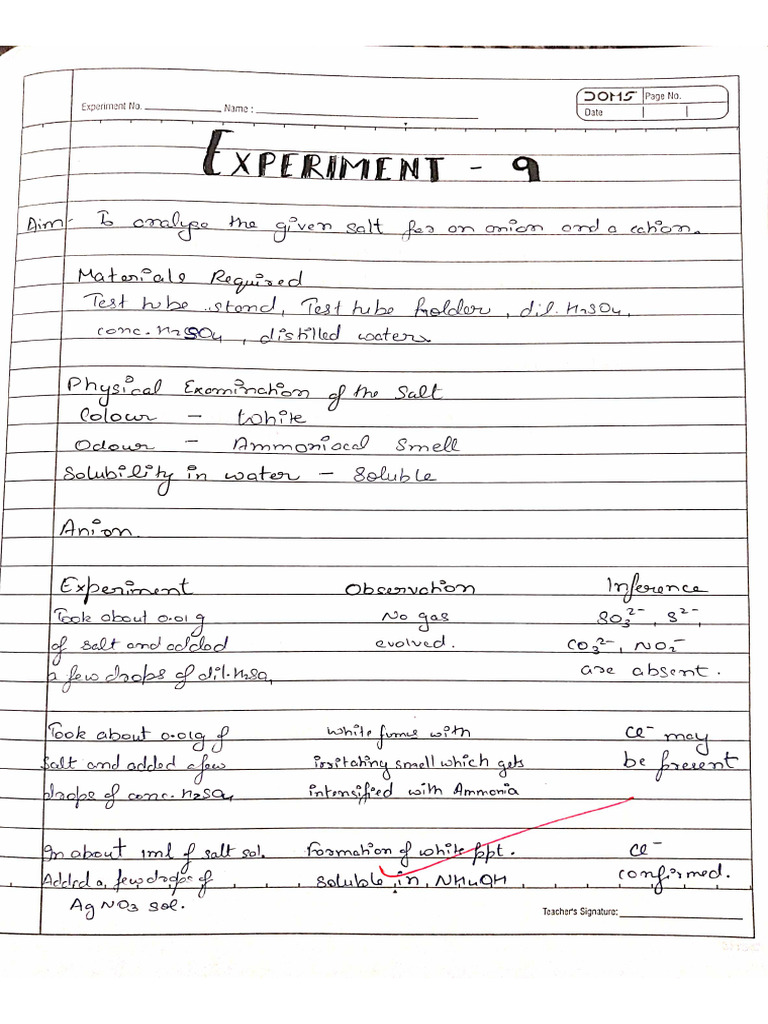 Experiment No. Name :
DOMS Page No.
Date
EXPERIMENT - 9
Aim- To analyse the given salt for an anion and a cation.
Materials Required
Test tube stand, Test tube holder, dil. H2SO4,
conc. H2SO4, distilled water.
Physical Examination of the Salt
Colour - White
Odour - Ammoniacal Smell
Solubility in water - Soluble
Anion.
Experiment Observation Inference
Took about 0.01 g No gas SO3²⁻, S²⁻,
of salt and added evolved. CO3²⁻, NO2⁻
a few drops of dil. H2SO4 are absent.
Took about 0.01g of White fumes with Cl⁻ may
salt and added a few irritating smell which gets be present
drops of conc. H2SO4 intensified with Ammonia
In about 1ml of salt sol. Formation of white ppt. Cl⁻
Added a few drops of soluble in NH4OH confirmed.
AgNO3 sol.
Teacher's Signature: